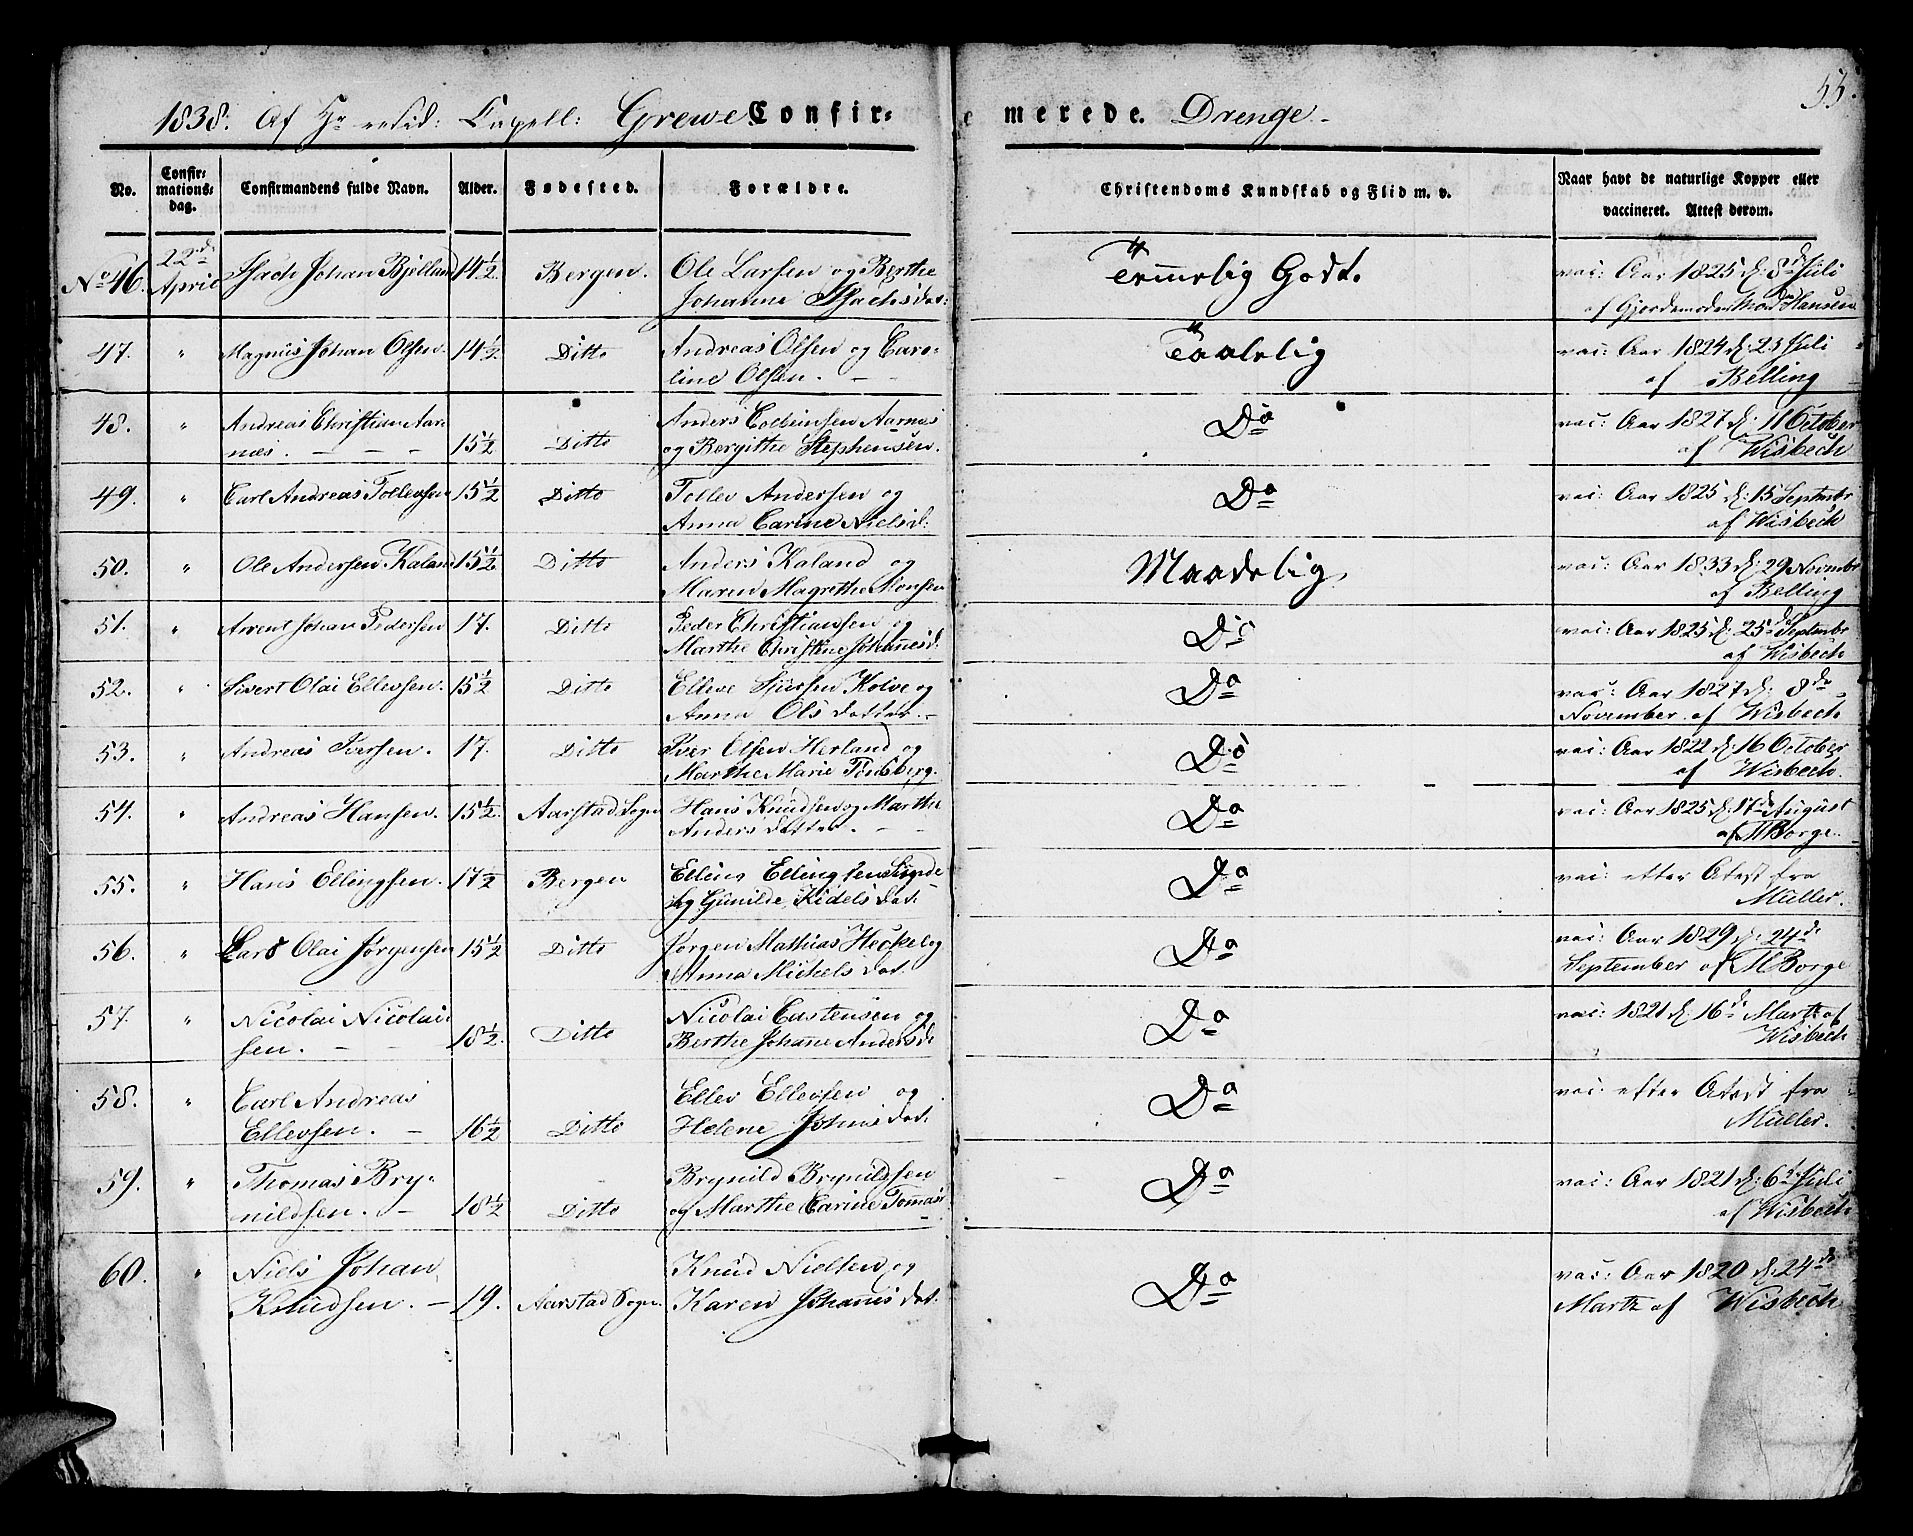 55.
1838. Af Hr resid: Capell: Grewe Confir= merede. Drenge.
No. Confirmationsdag. Confirmandens fulde Navn. Alder. Fødested. Forældre. Christendoms Kundskab og Flid m. v. Naar havt de naturlige Kopper eller vaccineret. Attest derom.
No 46. 22de April Isach Johan Bjelland 14½. Bergen. Ole Larsen og Berthe Temmelig Godt. vac: Aar 1825 d: 8de Juli
Johanne Isachsdat: af Gjordemoder Mad Hansen
47. " Magnus Johan Olsen 14½. Ditto Andreas Olsen og Caro- Taalelig vac: Aar 1824 d: 23 Juli
line Olsen. af Belling
48. " Andreas Christian Aar Anders Colbeinsen Aarnæs Do vac: Aar 1827 d: 11 October
næs. 15½ Ditto og Bergithe Stephensen. af Wisbech
49. " Carl Andreas Tollevsen 15½ Ditto Tollev Andersen og Do vac: Aar 1825 d: 15 Septembr
Anna Carine Nielsd: af Wisbech
50. " Ole Andersen Kaland 15½ Ditto Anders Kaland og Maadelig vac: Aar 1833 d: 29 Novembr
Maren Magrethe Monsen af Belling
51. " Arent Johan Pedersen 17. Ditto Peder Christiansen og Do vac: Aar 1825 d: 25de Septembr
Marthe Christine Johannesd: af Wisbech
52. " Sivert Olai Ellevsen. 15½ Ditto Elleve Sjursen Kolve og Do vac: Aar 1827 d: 8de
Anna Olsdatter. November af Wisbech
53. " Andreas Iversen. 17. Ditto Iver Olsen Herland og Do vac: Aar 1822 d: 16 October
Marthe Marie Tønsberg. af Wisbech.
54. " Andreas Hansen. 15½. Aarstad Sogn Hans Knudsen og Marthe Do vac: Aar 1825 d: 17de August
Andersdatter. af M Borge.
55. " Hans Ellingsen. 17½ Bergen Elling Ellingsen Do vac: efter Atest fra
og Gunilde Kidelsdat. Müller.
56. " Lars Olai Jørgensen 15½ Ditto Jørgen Mathias Heckel og Do vac: Aar 1829 d: 24de
Anna Michelsdat. September af M Borge
57. " Nicolai Nicolai Nicolai Castensen og Do vac: 1821 d: 16de Martz af
sen. 18½. Ditto Berthe Johanne Andersd: Wisbech
58. " Carl Andreas Ellev Ellevsen og Do vac: efter Atest fra
Ellevsen. 16½ Ditto Helene Johnsdat. Müller.
59. " Thomas Bry- Brynild Brynildsen Do vac: Aar 1821 d: 6te Juli
nildsen. 18½ Ditto og Marthe Carine Tomasd: af Wisbech
60. " Niels Johan Knud Nielsen og Do vac: Aar 1820 d: 24de
Knudsen. 19. Aarstad Sogn Karen Johannisdat. Martz af Wisbech